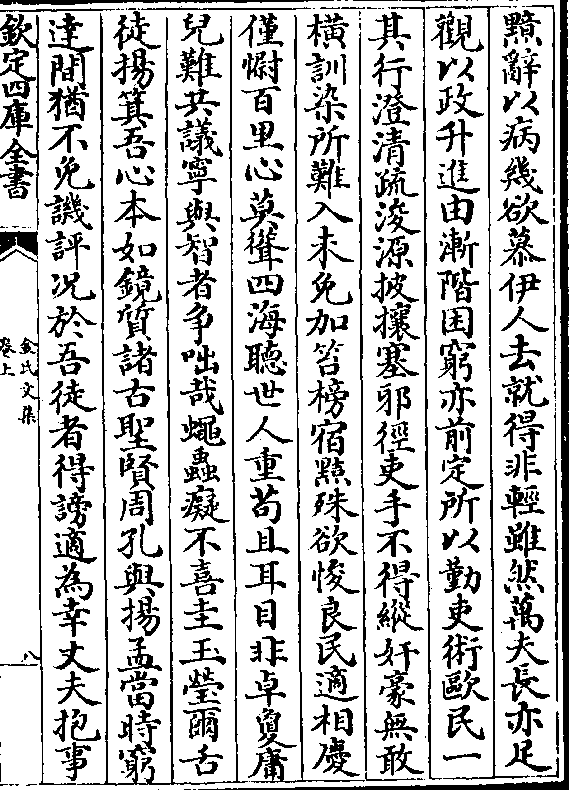 黥辭以病幾欲慕伊人去就得非輕雖然萬夫長亦足
觀以政升進由漸階困窮亦前定所以勤吏術歐民一
其行澄清疏浚源披攘塞邪徑吏手不得縱奸豪無敢
橫訓染所難入未免加笞榜宿㸃殊欲悛良民適相慶
僅懈百里心莫聳四海聽世人重茍且耳目非卓夐庸
兒難共議寧與智者争咄哉蠅蟲癡不喜圭玉瑩爾舌
徒揚箕吾心本如鏡質諸古聖賢周孔與揚孟當時窮
達間猶不免譏評况於吾徒者得謗適為幸丈夫抱事
欽定四庫全書
金氏文集
卷上
八